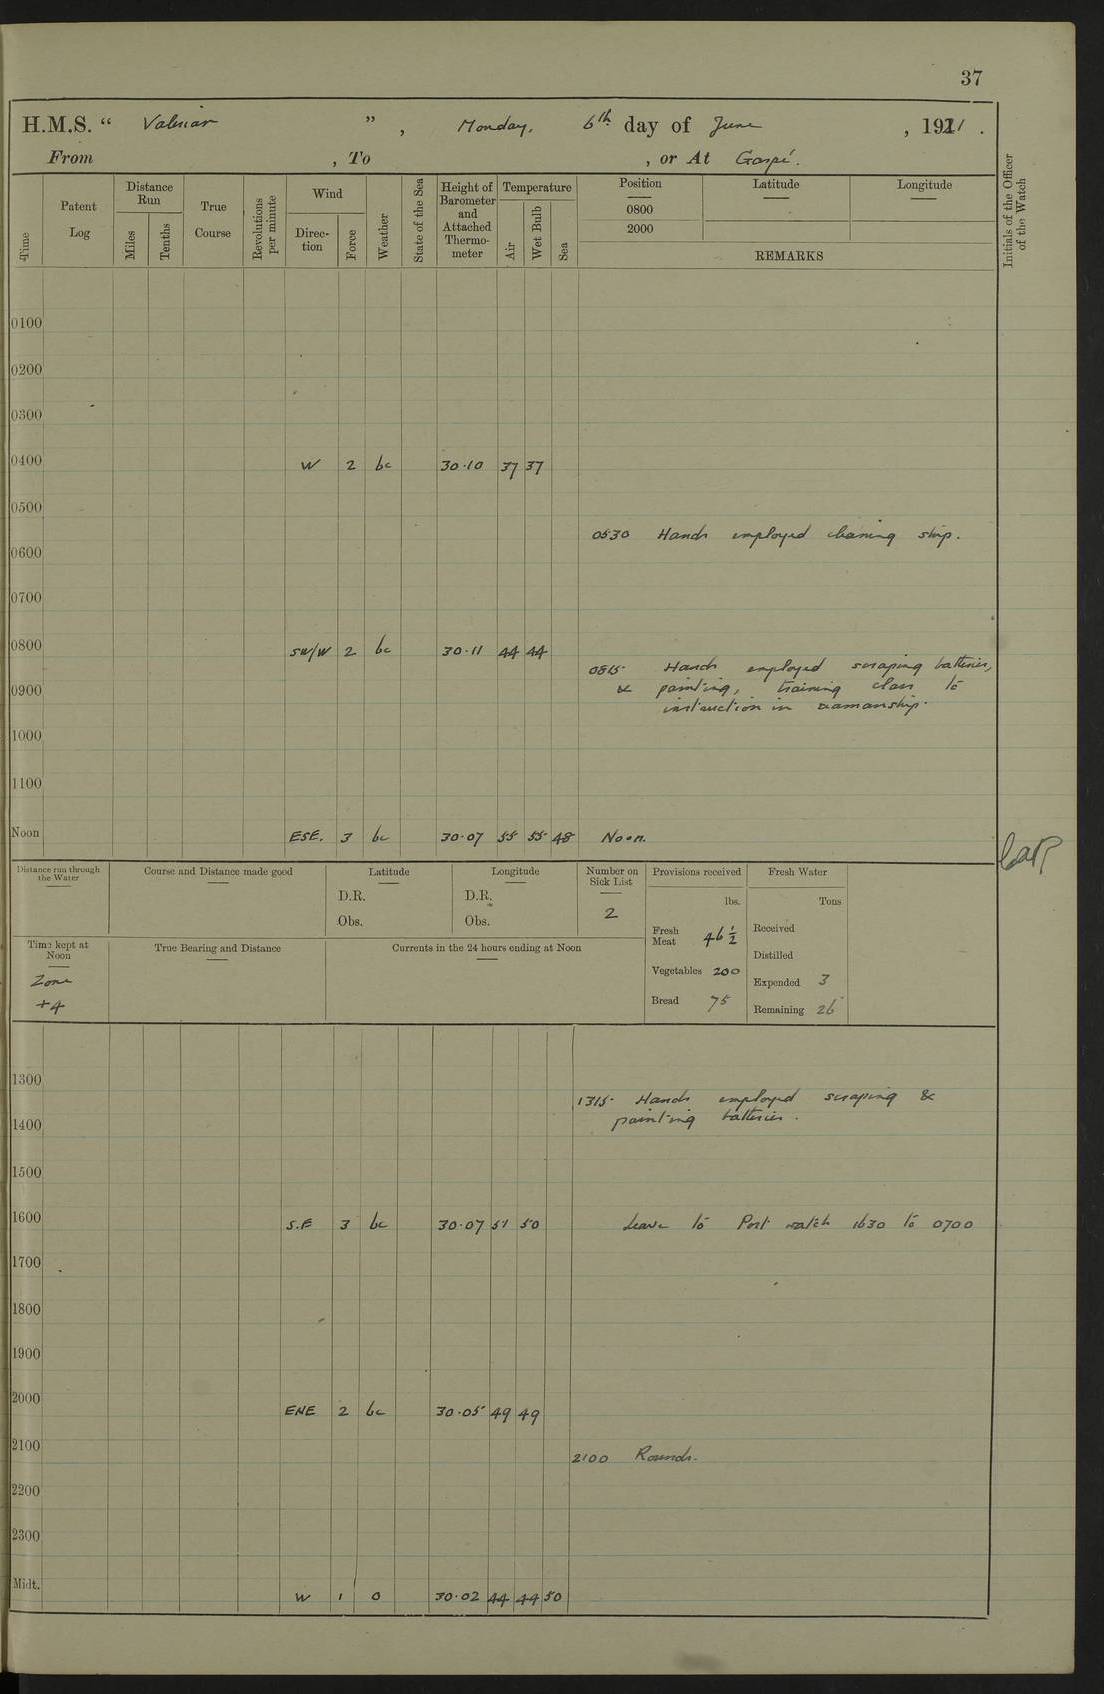 37
H.M.S. “ Valerian ” , Monday, 6th day of June , 1921 .
From , To , or At Gaspé.
Time
Patent Log
Distance Run
Miles
Tenths
True Course
Revolutions per minute
Wind
Direc-tion
Force
Weather
State of the Sea
Height of Barometer and Attached Thermo-meter
Temperature
Air
Wet Bulb
Sea
Position
0800
2000
Latitude
Longitude
REMARKS
Initials of the Officer of the Watch
0100
0200
0300
0400 W 2 bc 30·10 37 37
0500
0530 Hands employed cleaning ship.
0600
0700
0800 SW/W 2 bc 30·11 44 44
0815 Hands employed scraping batteries,
& painting, training class to
instruction in seamanship.
0900
1000
1100
Noon ESE. 3 bc 30·07 55 55 48 Noon.
Distance run through the Water
Course and Distance made good
Latitude
D.R.
Obs.
Longitude
D.R.
Obs.
Number on Sick List
2
Provisions received
lbs.
Fresh Meat 46½
Vegetables 200
Bread 75
Fresh Water
Tons
Received
Distilled
Expended 3
Remaining 26
Time kept at Noon
Zone
+4
True Bearing and Distance
Currents in the 24 hours ending at Noon
1300
1315 Hands employed scraping &
painting batteries.
1400
1500
1600 S.E 3 bc 30·07 51 50 Leave to Port watch 1630 to 0700
1700
1800
1900
2000 ENE 2 bc 30·05 49 49
2100
2100 Rounds.
2200
2300
Midt. W 1 0 30·02 44 44 50